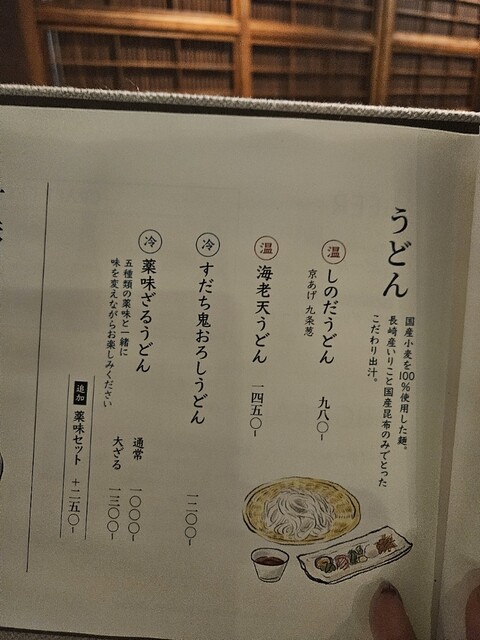 うどん
国産小麦を100%使用した麺。
長崎産いりこと国産昆布のみでとった
こだわり出汁。
温 しのだうどん 九八〇-
京あげ 九条葱
温 海老天うどん 一四五〇-
冷 すだち鬼おろしうどん 一二〇〇-
冷 薬味ざるうどん
五種類の薬味と一緒に
味を変えながらお楽しみください
通常 一〇〇〇-
大ざる 一三〇〇-
追加 薬味セット +二五〇-